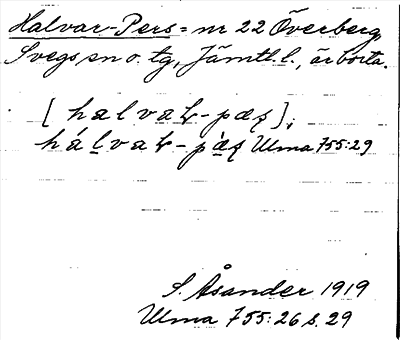 Halvar-Pers = nr 22 Överberg,
Svegs sn o. tg, Jämtl. l., är borta.
[halvaʈ-pæʂ];
hálvaʈ-pæ̀ʂ Ulma 755:29
S. Åsander 1919
Ulma 755:26 s. 29